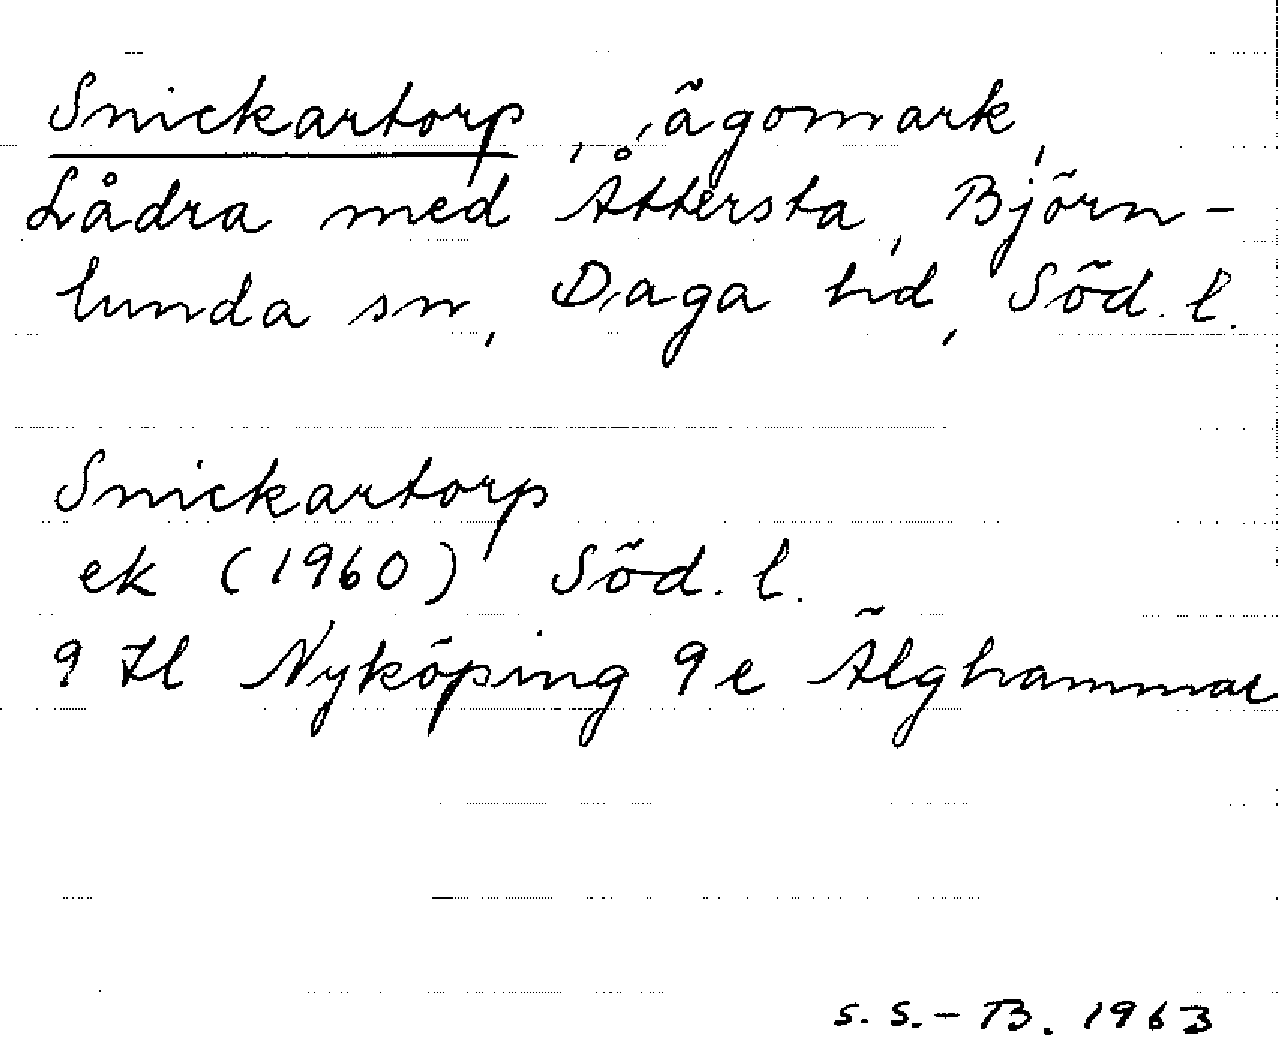 Snickartorp, ägomark,
Lådra med Åttersta, Björn-
lunda sn, Daga hd, Söd. l.
Snickartorp
ek (1960) Söd. l.
9 H Nyköping 9 e Älghammar
S. S.-B. 1963